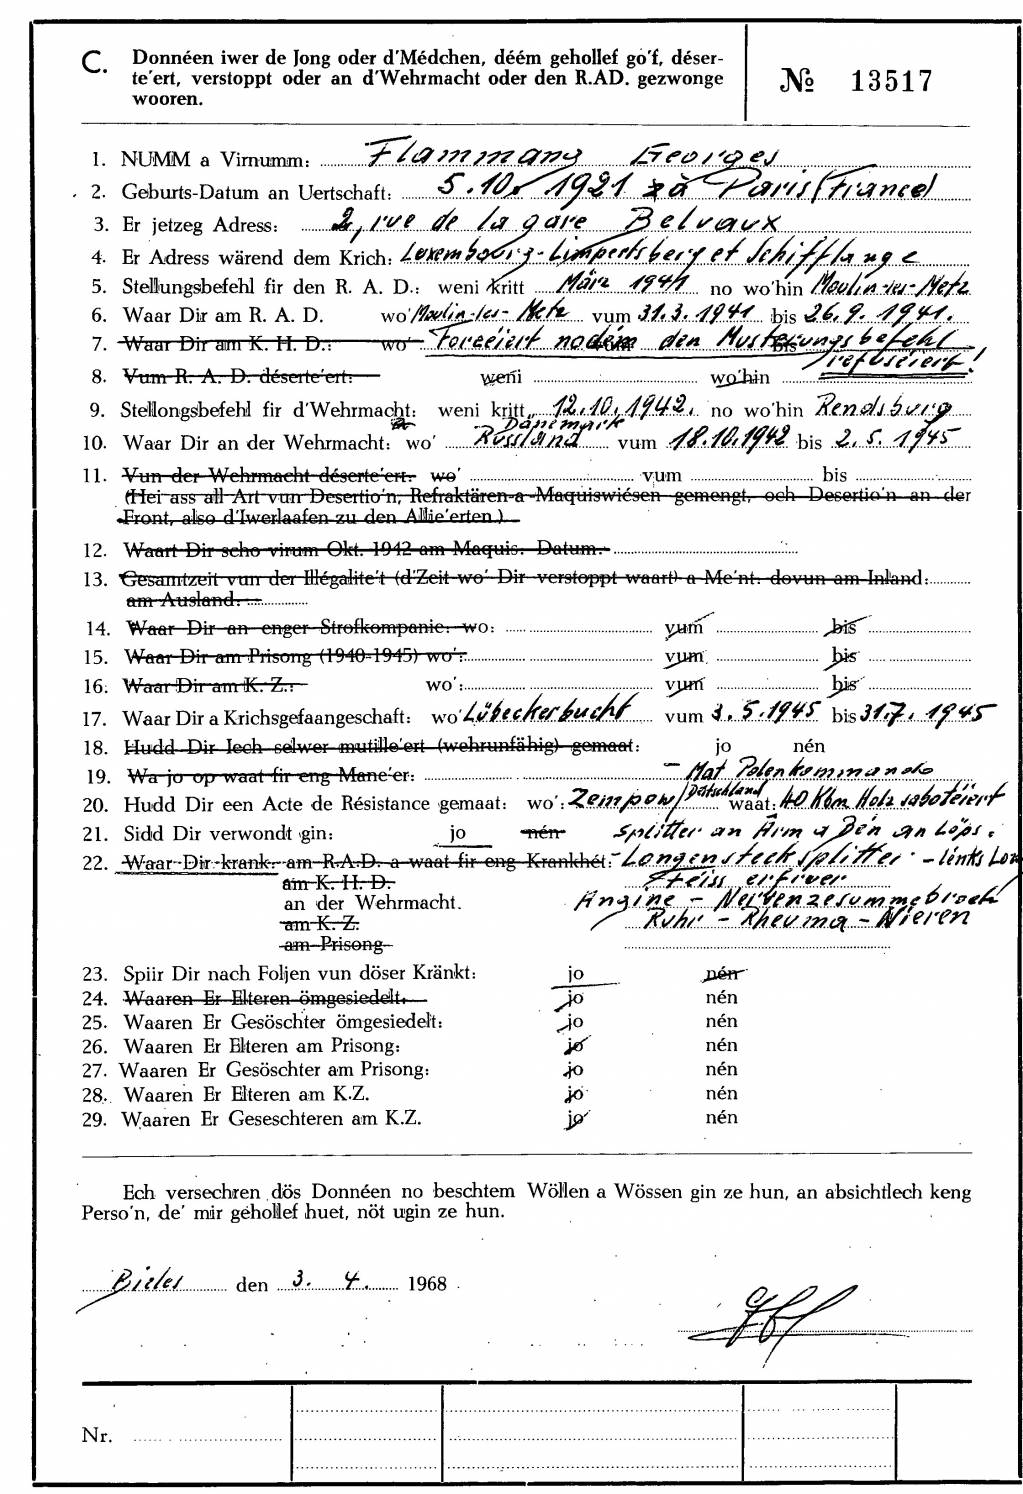 C. Donnéen iwer de Jong oder d'Médchen, déém gehollef go'f, déser-
te'ert, verstoppt oder an d'Wehrmacht oder den R.AD. gezwonge
wooren.
№ 13517
1. NUMM a Virnumm: Flammang Georges
2. Geburts-Datum an Uertschaft: 5.10.1921 à Paris (France)
3. Er jetzeg Adress: 2, rue de la gare Belvaux
4. Er Adress wärend dem Krich: Luxembourg-Limpertsberg et Schifflange
5. Stellungsbefehl fir den R. A. D.: weni kritt März 1941 no wo'hin Moulin-les-Metz
6. Waar Dir am R. A. D. wo' Moulin-les-Metz vum 31.3.1941 bis 26.9.1941.
7. Waar Dir am K. H. D.: wo' Forcéiert nodém den Musterungsbefehl bis
refuséiert!
8. Vum R. A. D. déserte'ert: weni wo'hin
9. Stellongsbefehl fir d'Wehrmacht: weni kritt 12.10.1942. no wo'hin Rendsburg
Dänemark
10. Waar Dir an der Wehrmacht: wo' Russland vum 18.10.1942 bis 2.5.1945
11. Vun der Wehrmacht déserte'ert. wo' vum bis
(Hei ass all Art vun Desertio'n, Refraktären a Maquiswiésen gemengt, och Desertio'n an der
Front, also d'Iwerlaafen zu den Allie'erten.)
12. Waart Dir scho virum Okt. 1942 am Maquis. Datum.
13. Gesamtzeit vun der Illégalite't (d'Zeit wo' Dir verstoppt waart) a Me'nt. dovun am Inland:
am Ausland:
14. Waar Dir an enger Strofkompanie: wo: vum bis
15. Waar Dir am Prisong (1940-1945) wo': vum bis
16. Waar Dir am K. Z.: wo': vum bis
17. Waar Dir a Krichsgefaangeschaft: wo' Lübeckerbucht vum 3.5.1945 bis 31.7.1945
18. Hudd Dir Iech selwer mutille'ert (wehrunfähig) gemaat: jo nén
19. Wa jo op waat fir eng Mane'er: – Mat Polenkommando
20. Hudd Dir een Acte de Résistance gemaat: wo': Zempow/Deitschland waat: 40 Kbm Holz sabotéiert
21. Sidd Dir verwondt gin: jo nén Splitter an Ärm a Bén an Löps.
22. Waar Dir krank: am R.A.D. a waat fir eng Krankhét: Longenstecksplitter – lénks
am K. H. D. Féiss erfruer
an der Wehrmacht. Angine – Nervenzesummebroch
am K. Z. Ruhr – Rheuma – Nieren
am Prisong
23. Spiir Dir nach Foljen vun döser Kränkt: jo nén
24. Waaren Er Elteren ömgesiedelt. jo nén
25. Waaren Er Gesöschter ömgesiedelt: jo nén
26. Waaren Er Elteren am Prisong: jo nén
27. Waaren Er Gesöschter am Prisong: jo nén
28. Waaren Er Elteren am K.Z. jo nén
29. Waaren Er Geseschteren am K.Z. jo nén
Ech versechren dös Donnéen no beschtem Wöllen a Wössen gin ze hun, an absichtlech keng
Perso'n, de' mir gehollef huet, nöt ugin ze hun.
Bieles den 3. 4. 1968
Nr.